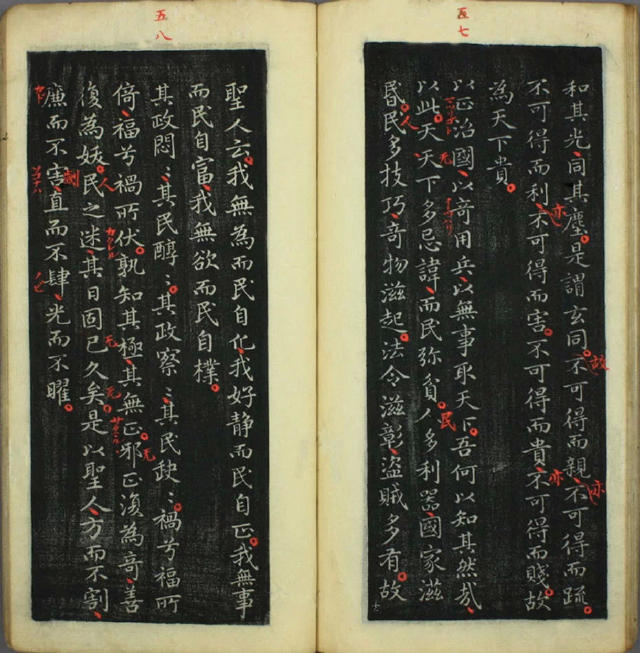 五七
和其光同其塵是謂玄同不可得而親不可得而疏
故
亦
不可得而利不可得而害不可得而貴不可得而賤故
亦
亦
為天下貴
以正治國以奇用兵以無事取天下吾何以知其然哉
以此天天下多忌諱而民弥貧人多利器國家滋
民
昬民多技巧奇物滋起法令滋彰盜賊多有故
人
五八
聖人云我無為而民自化我好静而民自正我無事
而民自富我無欲而民自樸
其政悶〻其民醇〻其政察〻其民缺〻禍兮福所
倚福兮禍所伏孰知其極其無正邪正復為奇善
復為妖民之迷其日固已久矣是以聖人方而不割
人
廉而不害直而不肆光而不曜